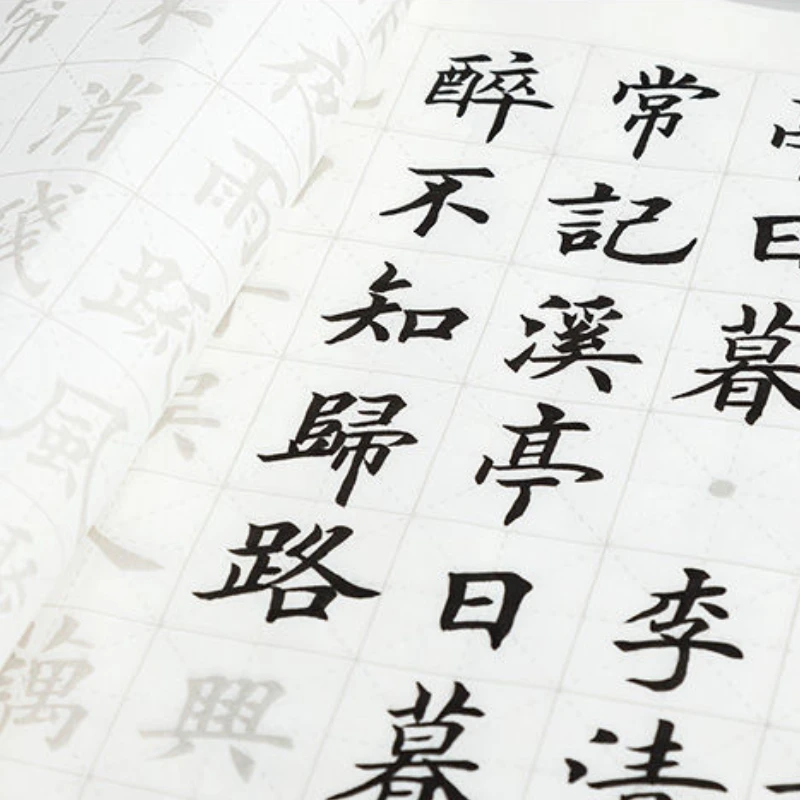 日暮 李清
常記溪亭日暮
醉不知歸路興
藕
雨疏風
不消殘